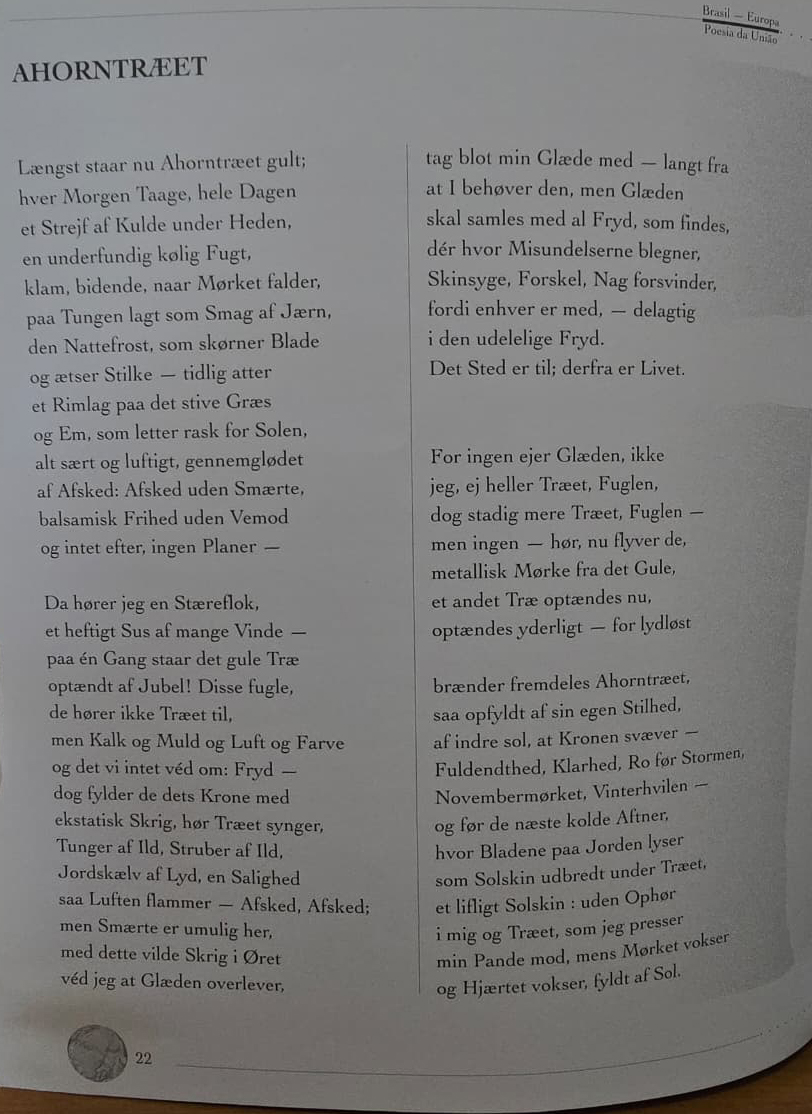 Brasil — Europa
Poesia da União
AHORNTRÆET
Længst staar nu Ahorntræet gult;
hver Morgen Taage, hele Dagen
et Strejf af Kulde under Heden,
en underfundig kølig Fugt,
klam, bidende, naar Mørket falder,
paa Tungen lagt som Smag af Jærn,
den Nattefrost, som skørner Blade
og ætser Stilke — tidlig atter
et Rimlag paa det stive Græs
og Em, som letter rask for Solen,
alt sært og luftigt, gennemglødet
af Afsked: Afsked uden Smærte,
balsamisk Frihed uden Vemod
og intet efter, ingen Planer —
Da hører jeg en Stæreflok,
et heftigt Sus af mange Vinde —
paa én Gang staar det gule Træ
optændt af Jubel! Disse fugle,
de hører ikke Træet til,
men Kalk og Muld og Luft og Farve
og det vi intet véd om: Fryd —
dog fylder de dets Krone med
ekstatisk Skrig, hør Træet synger,
Tunger af Ild, Struber af Ild,
Jordskælv af Lyd, en Salighed
saa Luften flammer — Afsked, Afsked;
men Smærte er umulig her,
med dette vilde Skrig i Øret
véd jeg at Glæden overlever,
tag blot min Glæde med — langt fra
at I behøver den, men Glæden
skal samles med al Fryd, som findes,
dér hvor Misundelserne blegner,
Skinsyge, Forskel, Nag forsvinder,
fordi enhver er med, — delagtig
i den udelelige Fryd.
Det Sted er til; derfra er Livet.
For ingen ejer Glæden, ikke
jeg, ej heller Træet, Fuglen,
dog stadig mere Træet, Fuglen —
men ingen — hør, nu flyver de,
metallisk Mørke fra det Gule,
et andet Træ optændes nu,
optændes yderligt — for lydløst
brænder fremdeles Ahorntræet,
saa opfyldt af sin egen Stilhed,
af indre sol, at Kronen svæver —
Fuldendthed, Klarhed, Ro før Stormen,
Novembermørket, Vinterhvilen —
og før de næste kolde Aftner,
hvor Bladene paa Jorden lyser
som Solskin udbredt under Træet,
et lifligt Solskin : uden Ophør
i mig og Træet, som jeg presser
min Pande mod, mens Mørket vokser
og Hjærtet vokser, fyldt af Sol.
22